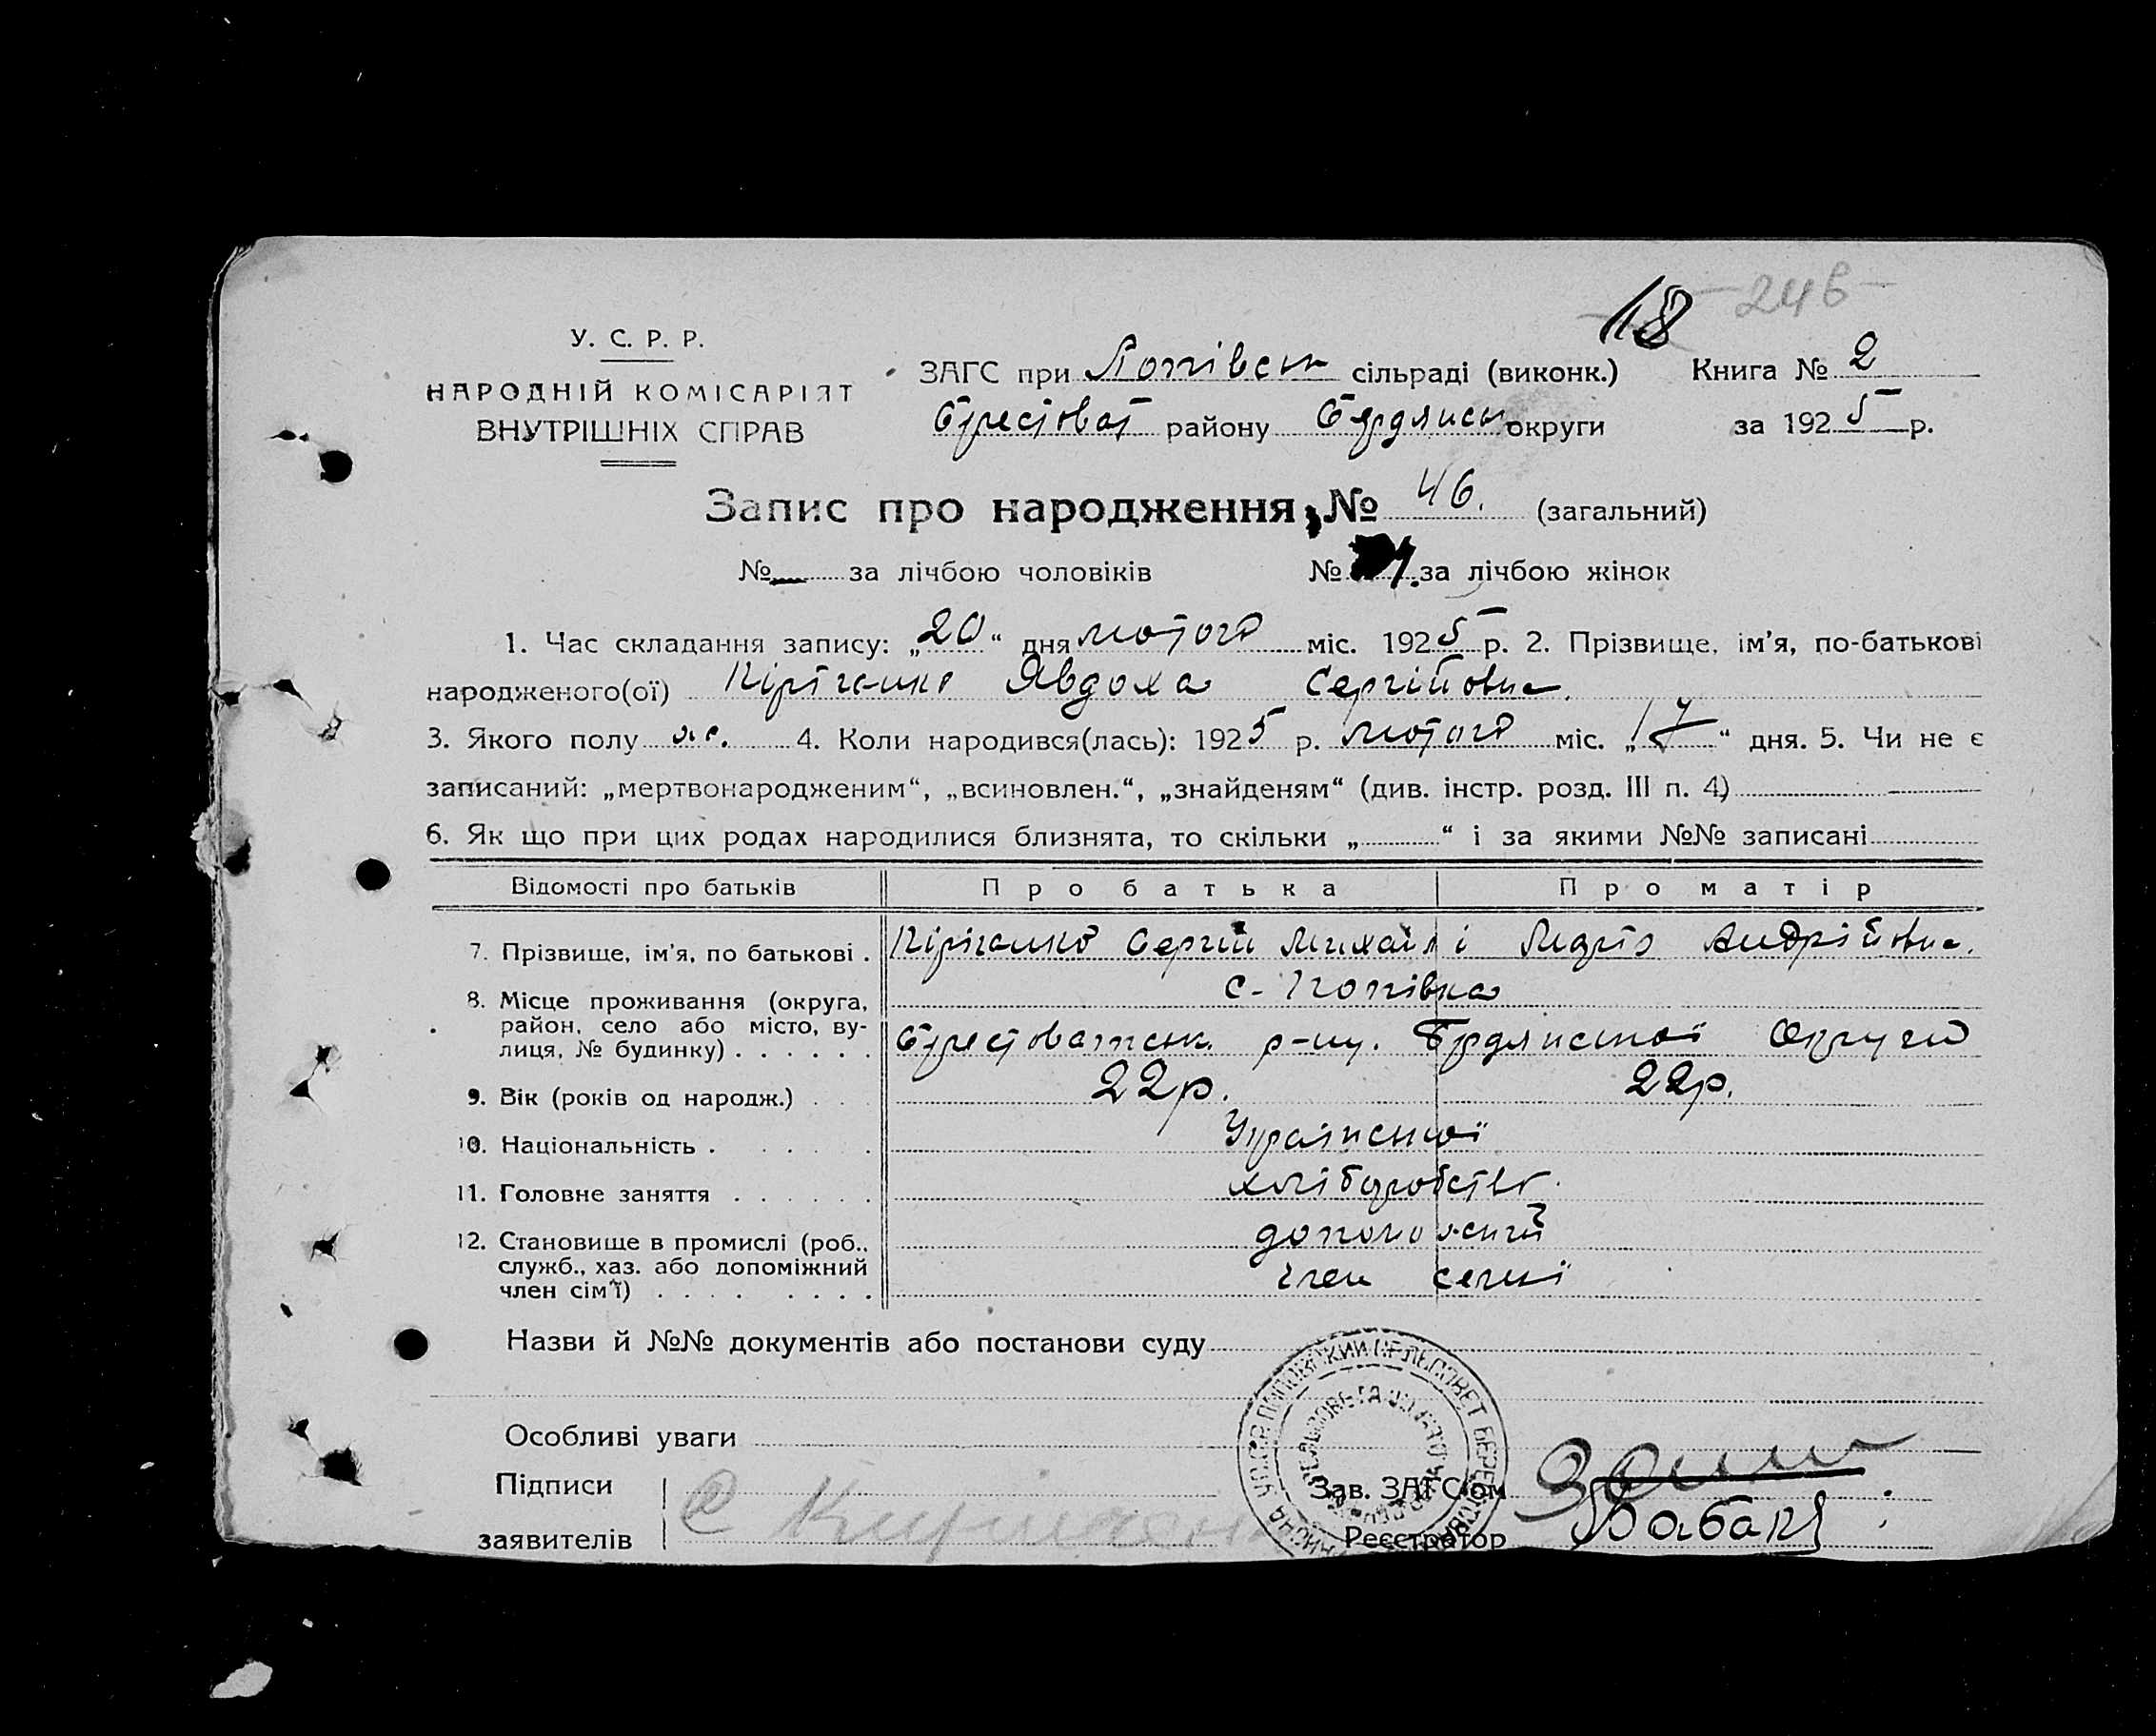 18 - 246 -
У. С. Р. Р.
НАРОДНІЙ КОМІСАРІЯТ
ВНУТРІШНІХ СПРАВ
ЗАГС при Попівськ сільраді (виконк.) Книга № 2
Берестоват району Бердянськ округи за 1925 р.
Запис про народження, № 46. (загальний)
№ — за лічбою чоловіків № за лічбою жінок
1. Час складання запису: „20“ дня лютого міс. 1925 р. 2. Прізвище, ім'я, по-батькові
народженого(ої) Явдоха Сергійовна.
3. Якого полу ж. 4. Коли народився(лась): 1925 р. лютого міс. „17“ дня. 5. Чи не є
записаний: „мертвонародженим“, „всиновлен.“, „знайденям“ (див. інстр. розд. III п. 4)
6. Як що при цих родах народилися близнята, то скільки „ “ і за якими №№ записані
Відомості про батьків Про батька Про матір
7. Прізвище, ім'я, по батькові . Сергій Михайл і Марія Андрійовна.
8. Місце проживання (округа, с. Попівка
район, село або місто, ву-
лиця, № будинку) . . . . . . Берестоватськ. р-ну. Бердянської Округи
9. Вік (років од народж.) . . 22р. 22р.
10. Національність . . . . . . Української
11. Головне заняття . . . . . . хліборобство.
12. Становище в промислі (роб., допоможний
служб., хаз. або допоміжний
член сім'ї) . . . . . . . . член семї
Назви й №№ документів або постанови суду
Особливі уваги
Підписи
заявителів
Зав. ЗАГС'ом
Реєстратор Бабак